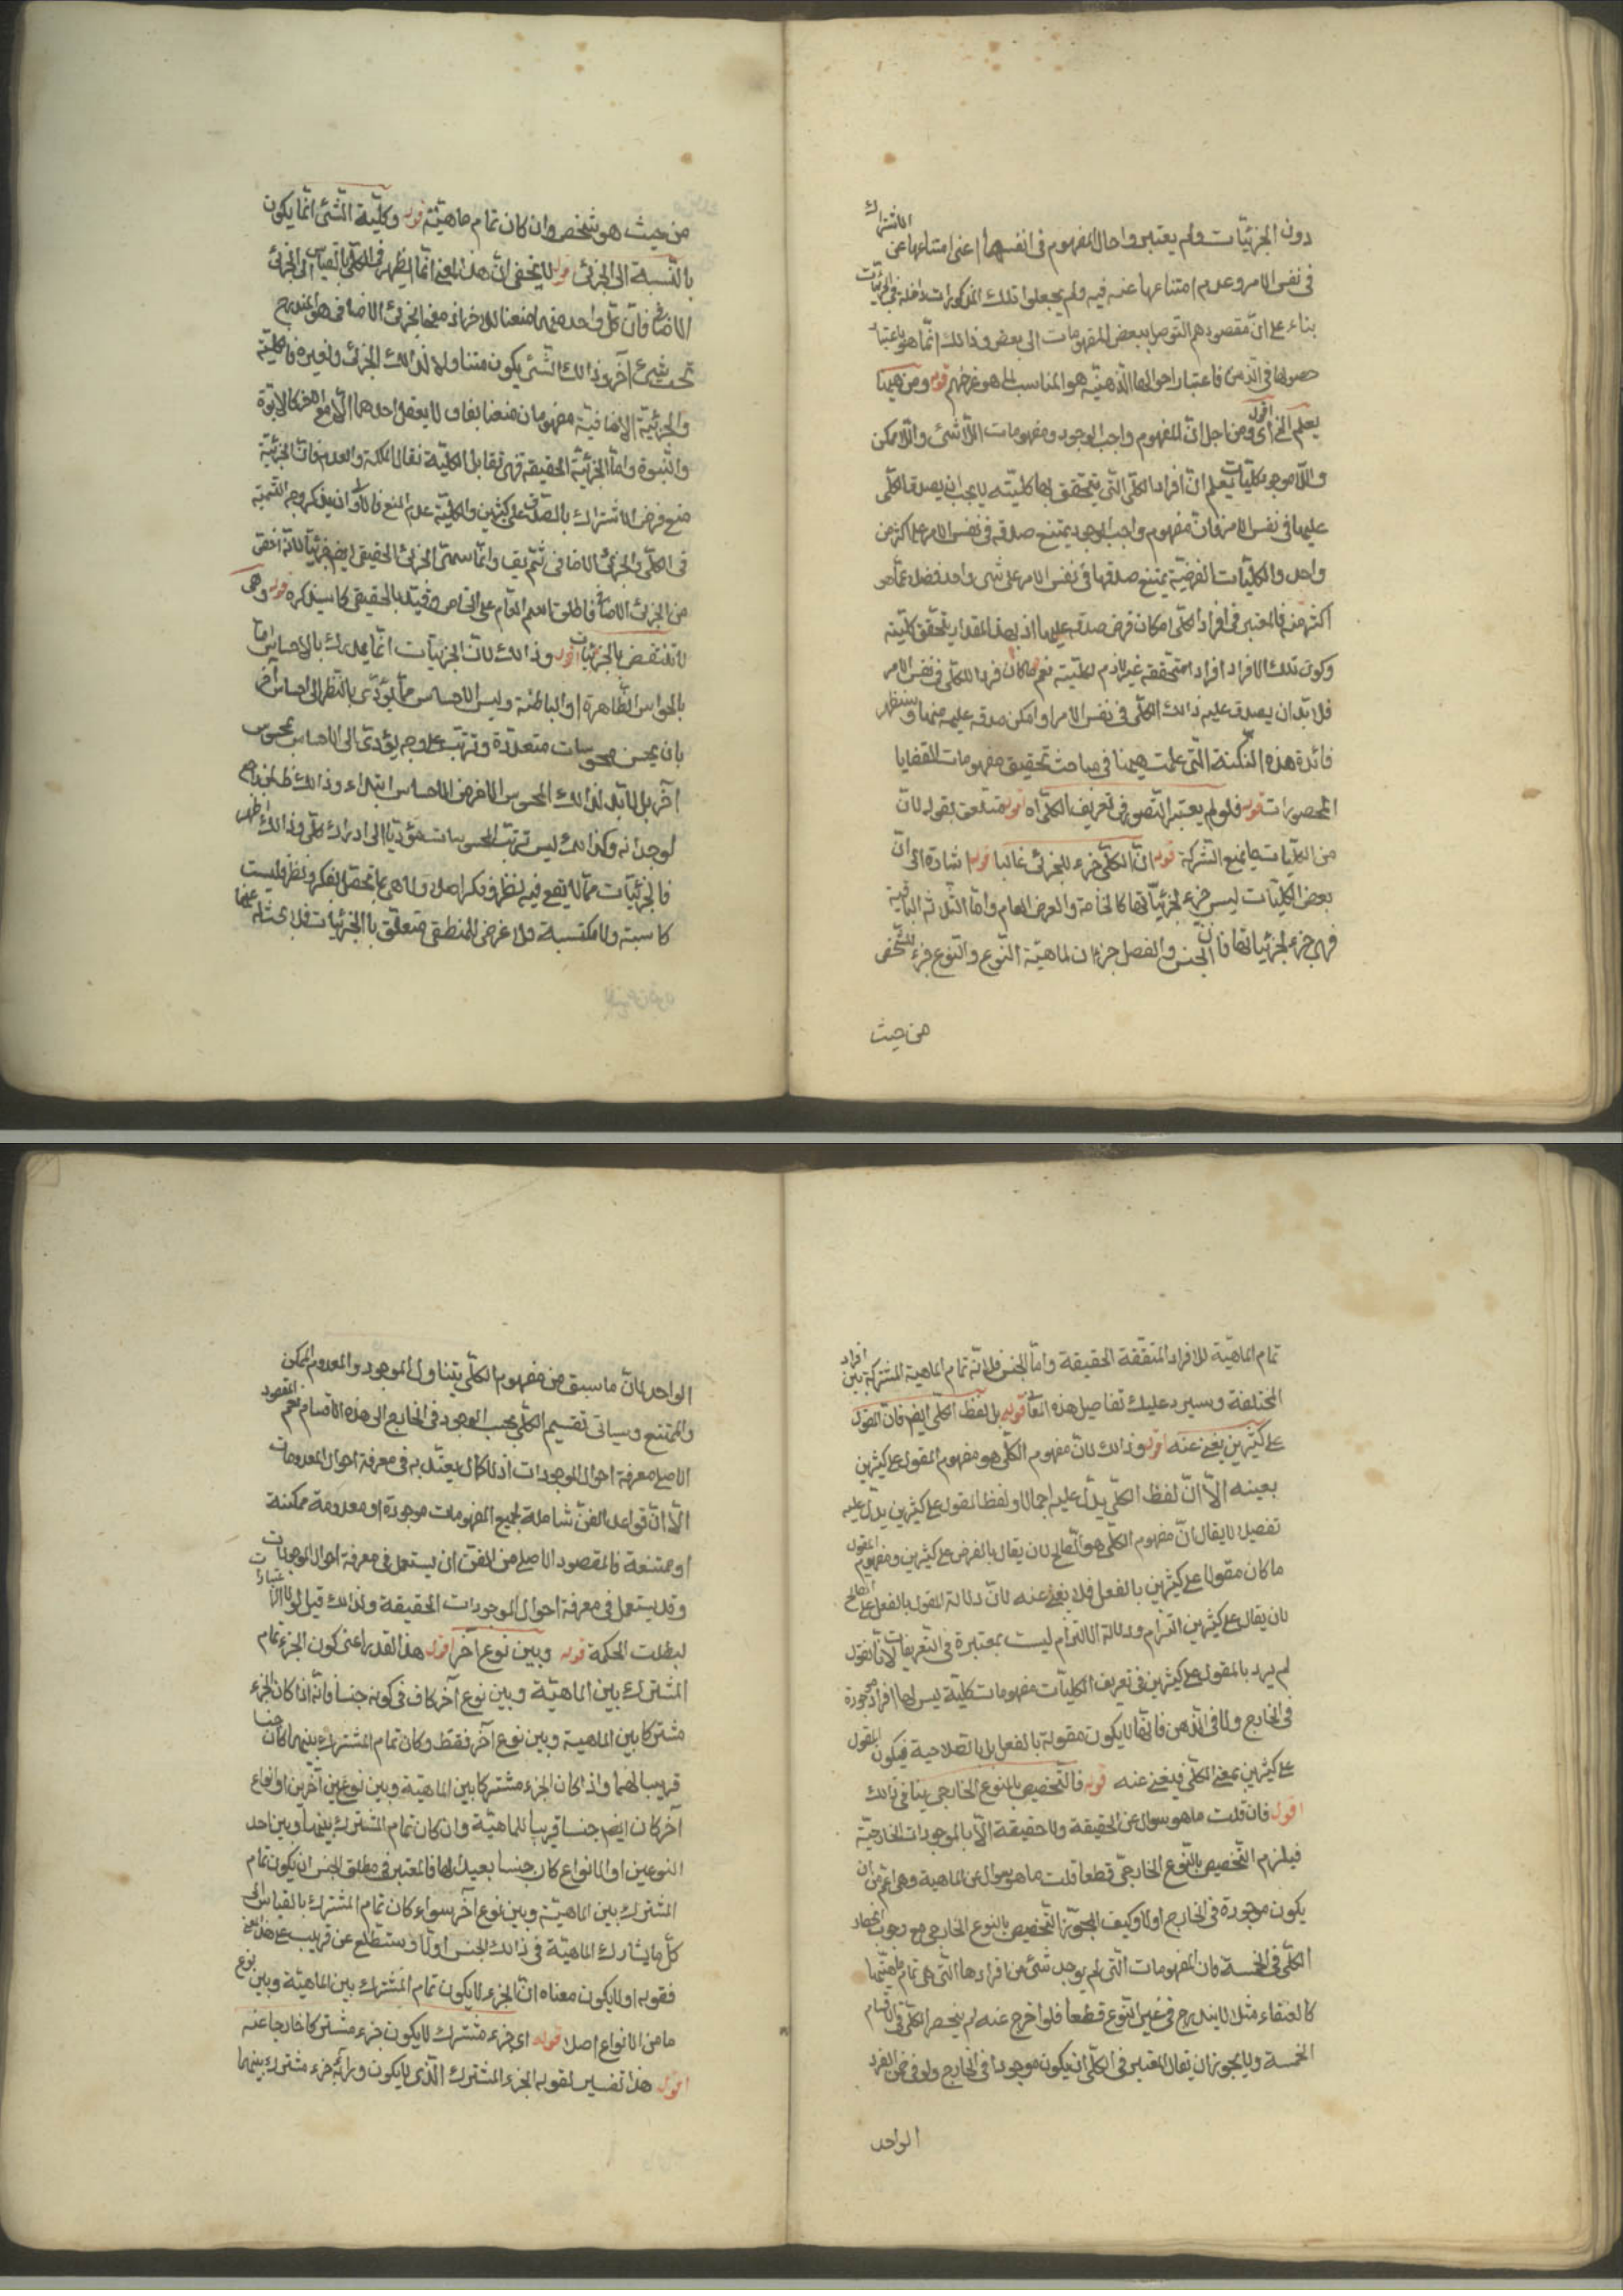 دون الجزئيات ولم يعتبروا حال المفهوم في انفسها اعني امتناعها عن الاشتراك
في نفس الامر وعدم امتناعها عنه فيه ولم يجعلوا تلك المذكورات داخلة في الجزئيات
بناء على ان مقصودهم التوصل ببعض المفهومات الى بعض وذالك انما هو باعتبار
حصولها في الذهن فاعتبار احوالها الذهنيه هو المناسب لما هو غرضهم قوله ومن ههنا
يعلم الخ اقول اى ومن اجل انّ المفهوم واجب الوجود ومفهومات اللاشئ واللاممكن
واللاموجود كليات يعلم ان افراد الكلّى التى يتحقق بها كليته لا يجب ان يصدق الكلّى
عليها فى نفس الامر فان مفهوم واجب الوجود يمتنع صدقه في نفس الامر على اكثر من
واحد والكليّات الفرضية يمتنع صدقها في نفس الامر على شئ واحد فضلا عما هو
اكثر منه فالمعتبر في افراد الكلى امكان فرض صدقه عليها اذ بهذا المقدار يتحقق كليته
وكون تلك الافراد افرادا متحققة غير لازم لكليته نعم ما كان فردا للكلّى في نفس الامر
فلا بدّ ان يصدق عليه ذالك الكلّى في نفس الامر او امكن صدقه عليه فيها وستظهر
فائدة هذه النكتة التى علمت ههنا في مباحث تحقيق مفهومات القضايا
المحصورات قوله فلو لم يعتبر التصور في تعريف الكلّى اه اقول متعلق بقوله لان
من الكليات ما يمنع الشركة قوله انّ الكلّى جزء للجزئى غالبا اقول اشارة الى انّ
بعض الكليّات ليس جزء لجزئياتها كالخاصة والعرض العام وامّا الثلاثة الباقية
فهى جزء لجزئياتها فان الجنس والفصل جزءان لماهيّة النّوع والنّوع جزء للشّخص
من حيث
من حيث هو شخص وان كان تمام ماهيّته قوله وكلّية الشّئ انّما يكون
بالنّسبة الى الجزئى اقول لا يخفى انّ هذا المعنى انّما يظهر في الكلّى بالقياس الى الجزئى
الاضافى فانّ كلّ واحد منهما متضايف للاخر اذ معنى الجزئى الاضافى هو المندرج
تحت شئ آخر وذالك الشّئ يكون متناولا لذالك الجزئى ولغيره فالكلية
والجزئية الاضافية مفهومان متضايفان لا يعقل احدهما الّا مع الاخر كالابوّة
والبنوة وامّا الجزئيّة الحقيقية فهى تقابل الكلّية تقابل الملكة والعدم فانّ الجزئيّة
منع فرض الاشتراك بالصدق على كثيرين والكليّة عدم المنع فالاولى ان يذكر وجه التسمية
في الكلّى والجزئى الاضافى ثم يقال وانّما سمّى الجزئى الحقيقى ايضا جزئيّا لانّه اخصّ
من الجزئى الاضافى فاطلق اسم العام على الخاص وقيد بالحقيقى كما سيذكره قوله وهى
لا تقتنص بالجزئيات اقول وذالك لانّ الجزئيّات انّما يدرك بالاحساس امّا
بالحواس الظّاهرة او الباطنة وليس الاحساس ممّا يؤدّى بالنّظر الى احساس آخر
بان يحسّ محسوسات متعدّدة وترتّب على وجه يؤدى الى الاحساس بمحسوس
آخر بل لا بدّ لذالك المحسوس الاخر من الاحساس ابتداء وذالك ظاهر لمن راجع
لوجدانه وكذالك ليس ترتيب المحسوسات مؤدّيا الى ادراك كلّى وذالك اظهر
فالجزئيّات ممّا لا يقع فيه نظر وفكر اصلا ولا هى ممّا يحصّل بفكر ونظر فليست
كاسبة ولا مكتسبة فلا غرض للمنطقى متعلّق باالجزئيات فلا بحث له عنها
تمام الماهيّة للافراد المتفقة الحقيقة وامّا الجنس فلانّه تمام الماهية المشتركة بين افراد
المختلفة وسيرد عليك تفاصيل هذه المعانى قوله بل لفظ الكلّى ايضا فان المقول
على كثيرين يغنى عنه اقول وذالك لانّ مفهوم الكلّى هو مفهوم المقول على كثيرين
بعينه الّا انّ لفظ الكلّى يدلّ عليه اجمالا ولفظ المقول على كثيرين يدلّ عليه
تفصيلا لا يقال انّ مفهوم الكلّى هو الصّالح لان يقال بالفرض على كثيرين ومفهوم المقول
ما كان مقولا على كثيرين بالفعل فلا يغنى عنه لانّ دلالة المقول بالفعل على الصالح
لان يقال على كثيرين التزام ودلالة الالتزام ليست بمعتبرة في التعريفات لانّا نقول
لم يرد بالمقول على كثيرين في تعريف الكليّات مفهومات كلية ليس لها افراد موجودة
في الخارج ولا في الذهن فانّها لا يكون مقولة بالفعل بل بالصّلاحية فيكون المقول
على كثيرين بمعنى الكلّى فيغنى عنه قوله فالتّخصيص بالنوع الخارجى ينافى ذالك
اقول فان قلت ما هو سؤال عن الحقيقة ولا حقيقة الّا بالموجودات الخارجيّة
فيلزم التّخصيص بالنّوع الخارجىّ قطعا قلت ما هو سؤال عن الماهية وهى اعم من ان
يكون موجودة في الخارج او لا وكيف يجوز التّخصيص بالنوع الخارجى مع وجوب انحصار
الكلّى في الخمسة فان المفهومات الّتى لم يوجد شئ من افرادها الّتى هى تمام ماهيّتها
كالعنقاء مثلا لا يندرج في غير النّوع قطعا فلو اخرج عنه لم ينحصر الكلّى في الاقسام
الخمسة ولا يجوز ان يقال المعتبر في الكلّى ان يكون موجودا في الخارج ولو في ضمن الفرد
الواحد
الواحد لانّ ما سبق من مفهوم الكلّى يتناول الموجود والمعدوم الممكن
والممتنع وسياتى تقسيم الكلّى بحسب الوجود في الخارج الى هذه الاقسام نعم المقصود
الاصلى معرفة احوال الموجودات اذ لا كمال يعتدّ به في معرفة احوال المعدومات
الّا انّ قواعد الفنّ شاملة لجميع المفهومات موجودة او معدومة ممكنة
او ممتنعة فالمقصود الاصلى من الفنّ ان يستعمل في معرفة احوال الموجودات
وقد يستعمل في معرفة احوال الموجودات الحقيقة ولذالك قيل لولا الاعتبارات
لبطلت الحكمة قوله وبين نوع آخر اقول هذا القدر اعنى كون الجزء تمام
المشترك بين الماهيّة وبين نوع آخر كاف في كونه جنسا فانّه اذا كان الجزء
مشتركا بين الماهية وبين نوع آخر فقط وكان تمام المشترك بينهما كان جنسا
قريبا لهما واذا كان الجزء مشتركا بين الماهيّة وبين نوعين آخرين او انواع
آخر كان ايضا جنسا قريبا للماهيّة وان كان تمام المشترك بينها وبين احد
النوعين او الانواع كان جنسا بعيدا لها فالمعتبر في مطلق الجنس ان يكون تمام
المشترك بين الماهيّة وبين نوع آخر سواء كان تمام المشترك بالقياس الى
كلّ ما يشارك الماهيّة في ذالك الجنس او لا وستطلع عن قريب على هذا المعنى
فقوله اولا يكون معناه انّ الجزء لا يكون تمام المشترك بين الماهيّة وبين نوع
ما من الانواع اصلا قوله اى جزء مشترك لا يكون جزء مشتركا خارجا عنه
اقول هذا تفسير لقوله الجزء المشترك الّذى لا يكون وراءه جزء مشترك بينهما